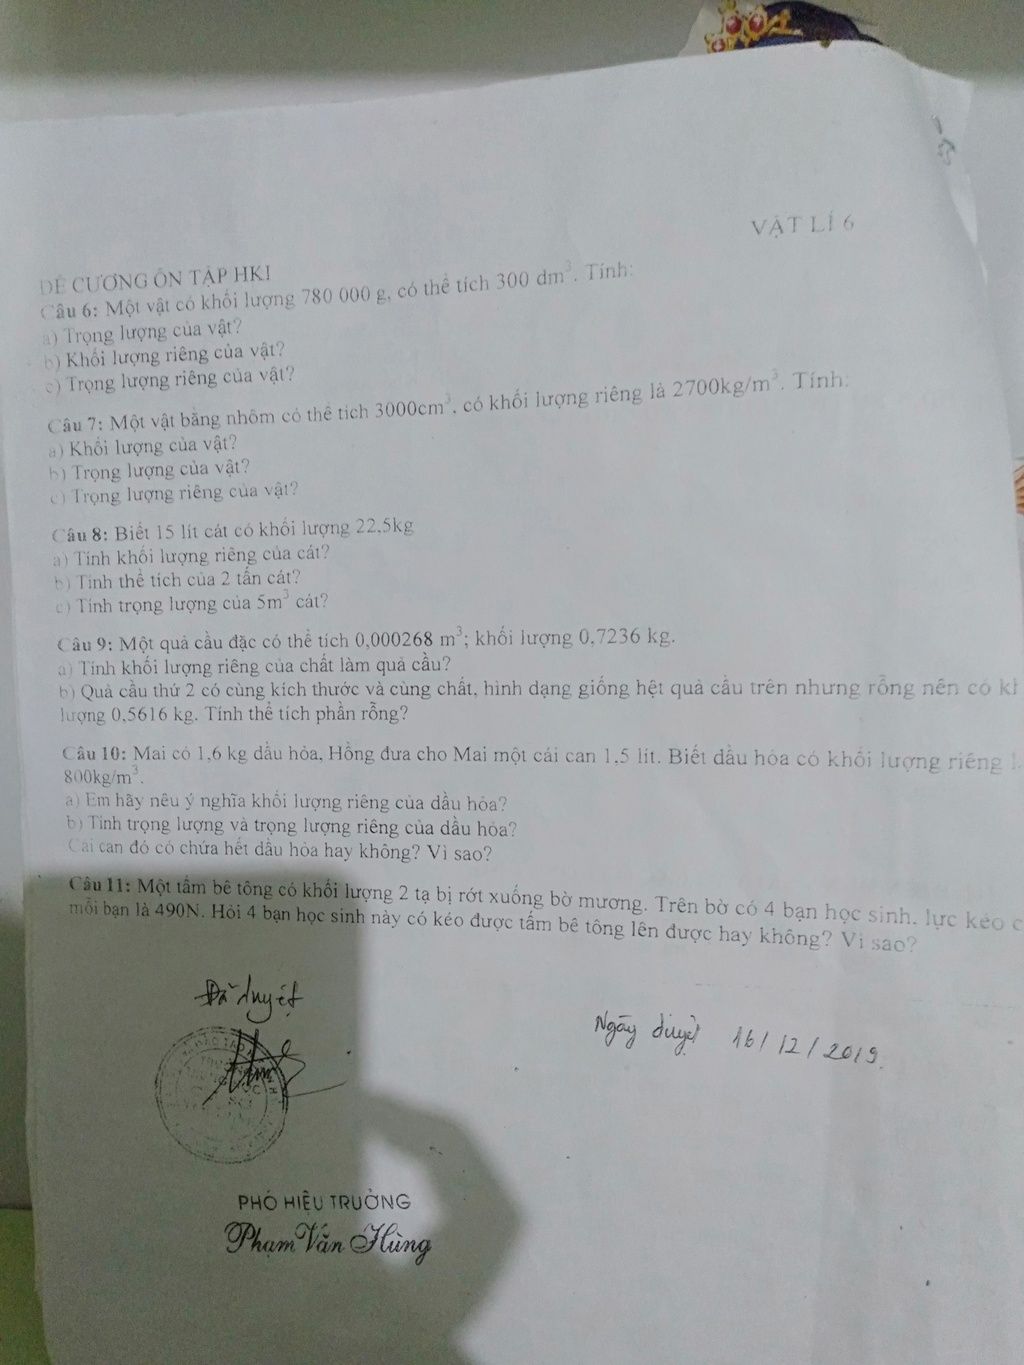 VẬT LÍ 6
ĐỀ CƯƠNG ÔN TẬP HKI
Câu 6: Một vật có khối lượng 780 000 g, có thể tích 300 dm³. Tính:
a) Trọng lượng của vật?
b) Khối lượng riêng của vật?
c) Trọng lượng riêng của vật?
Câu 7: Một vật bằng nhôm có thể tích 3000cm³, có khối lượng riêng là 2700kg/m³. Tính:
a) Khối lượng của vật?
b) Trọng lượng của vật?
c) Trọng lượng riêng của vật?
Câu 8: Biết 15 lít cát có khối lượng 22,5kg
a) Tính khối lượng riêng của cát?
b) Tính thể tích của 2 tấn cát?
c) Tính trọng lượng của 5m³ cát?
Câu 9: Một quả cầu đặc có thể tích 0,000268 m³; khối lượng 0,7236 kg.
a) Tính khối lượng riêng của chất làm quả cầu?
b) Quả cầu thứ 2 có cùng kích thước và cùng chất, hình dạng giống hệt quả cầu trên nhưng rỗng nên có kh
lượng 0,5616 kg. Tính thể tích phần rỗng?
Câu 10: Mai có 1,6 kg dầu hỏa, Hồng đưa cho Mai một cái can 1,5 lít. Biết dầu hỏa có khối lượng riêng
800kg/m³.
a) Em hãy nêu ý nghĩa khối lượng riêng của dầu hỏa?
b) Tính trọng lượng và trọng lượng riêng của dầu hỏa?
Cái can đó có chứa hết dầu hỏa hay không? Vì sao?
Câu 11: Một tấm bê tông có khối lượng 2 tạ bị rớt xuống bờ mương. Trên bờ có 4 bạn học sinh, lực kéo c
mỗi bạn là 490N. Hỏi 4 bạn học sinh này có kéo được tấm bê tông lên được hay không? Vì sao?
Đã duyệt
Ngày duyệt 16/12/2019.
PHÓ HIỆU TRƯỞNG
Phạm Văn Hùng